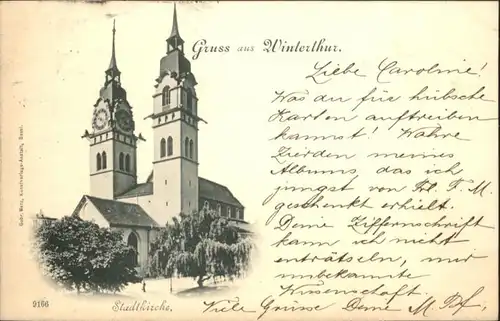 Gruss aus Winterthur.
Liebe Caroline!
Was du für hübsche
Karten auftreiben
kannst! Wahre
Zierden meines
Albums, das ich
jüngst von Frl. F. M.
geschenkt erhielt.
Deine Zifferschrift
kann ich nicht
enträtseln, mir
unbekannte
Wissenschaft.
Viele Grüsse Deine M.
Gebr. Metz, Kunstverlags-Anstalt, Basel.
9166
Stadtkirche.